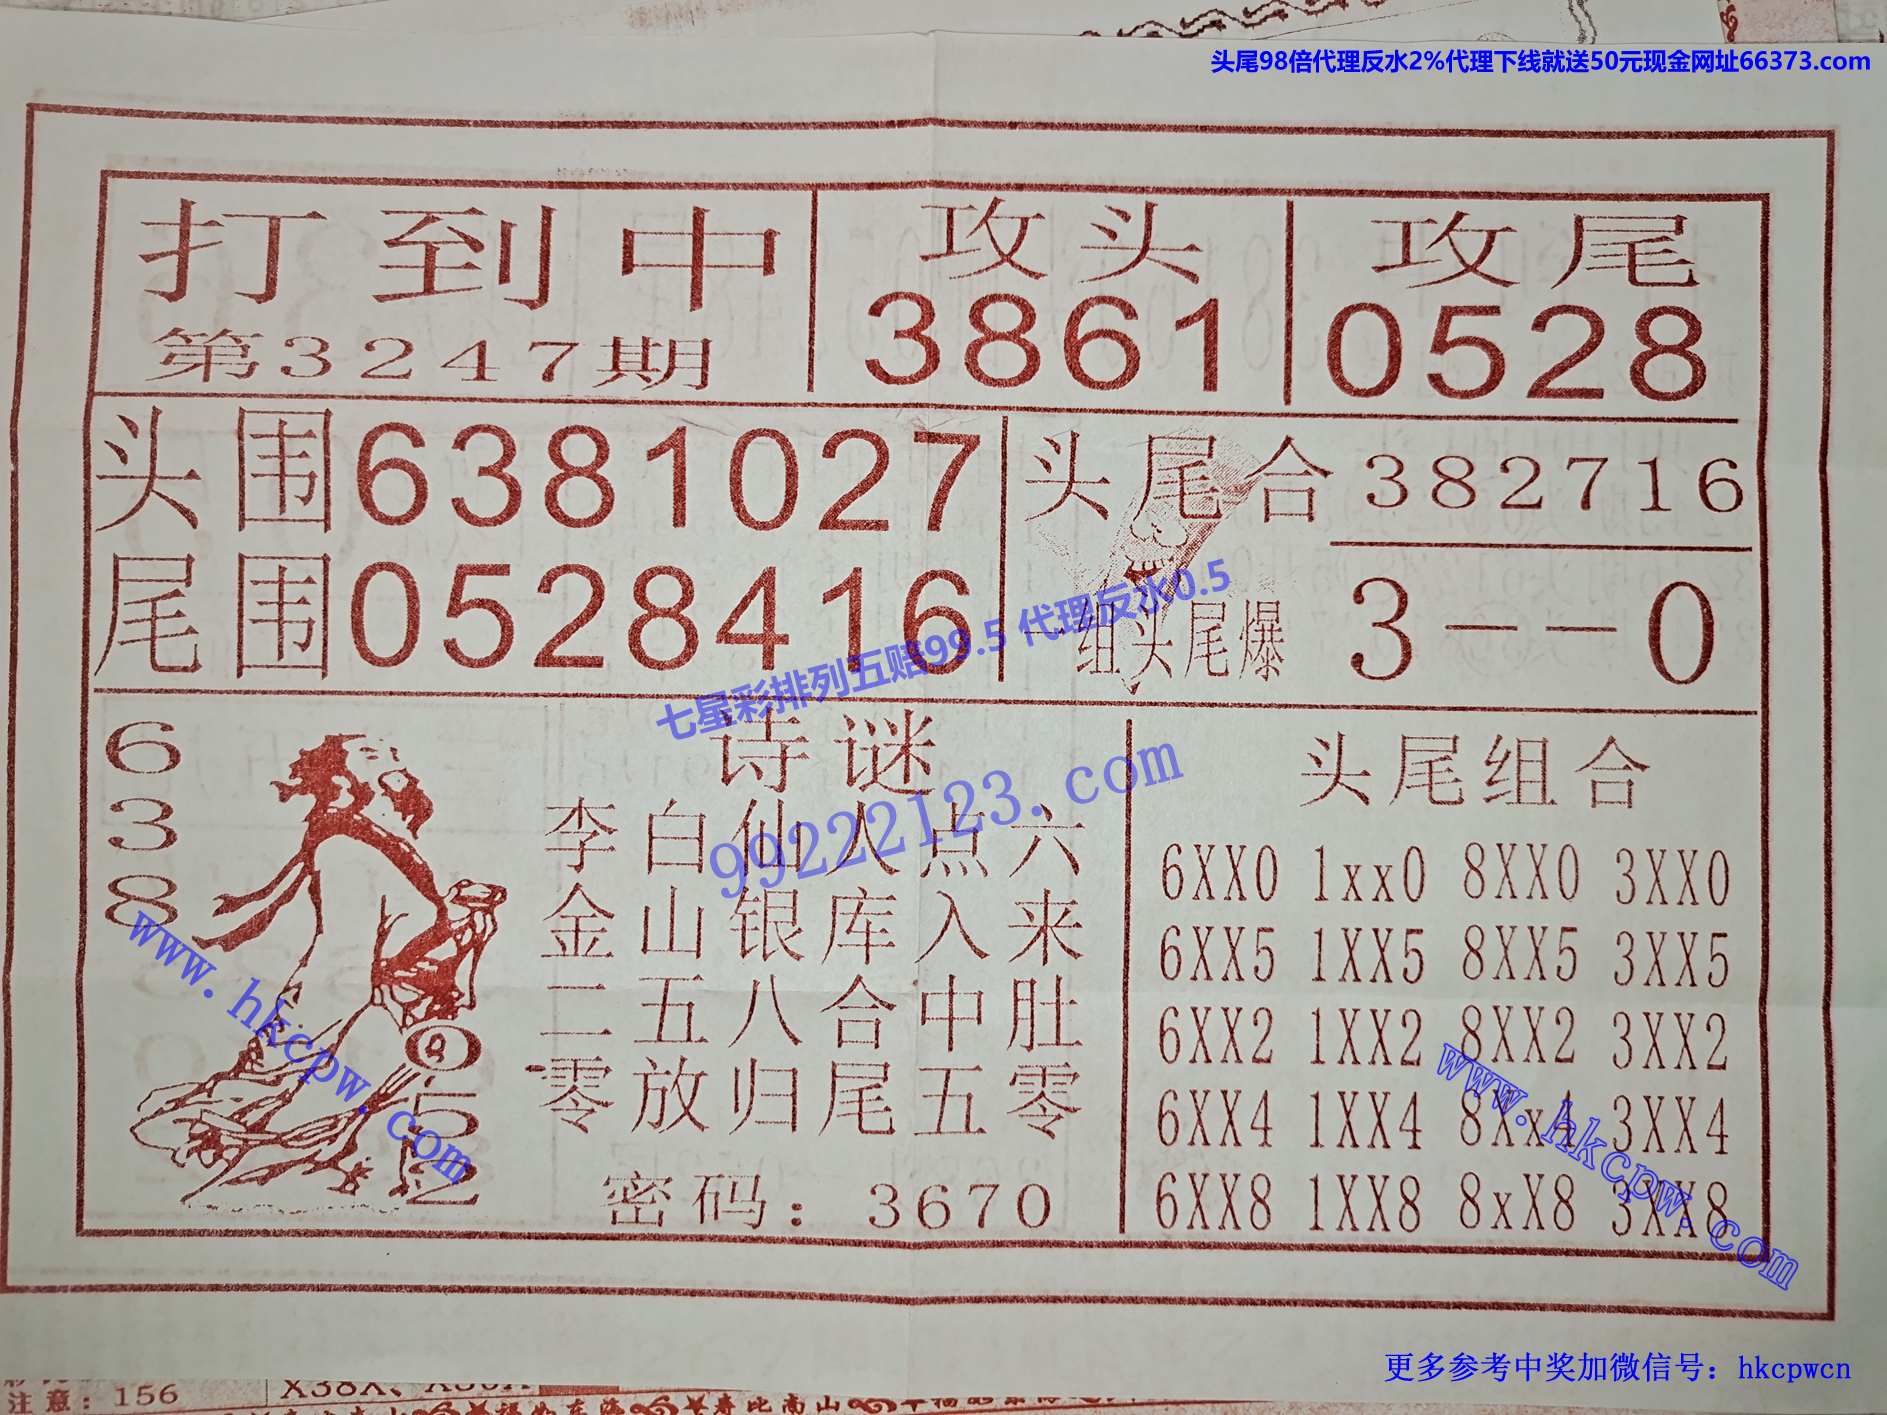 头尾98倍代理反水2%代理下线就送50元现金网址66373.com
打到中
第3247期
攻头
3861
攻尾
0528
头围6381027
尾围0528416
头尾合 382716
一组头尾爆 3--0
七星彩排列五赔99.5 代理反水0.5
99222123.com
638
052
诗谜
李白仙人点六
金山银库入来
二五八合中肚
零放归尾五零
密码：3670
头尾组合
6XX0 1xx0 8XX0 3XX0
6XX5 1XX5 8XX5 3XX5
6XX2 1XX2 8XX2 3XX2
6XX4 1XX4 8Xx4 3XX4
6XX8 1XX8 8xX8 3XX8
www.hkcpw.com
www.hkcpw.com
更多参考中奖加微信号：hkcpwcn
注意：156